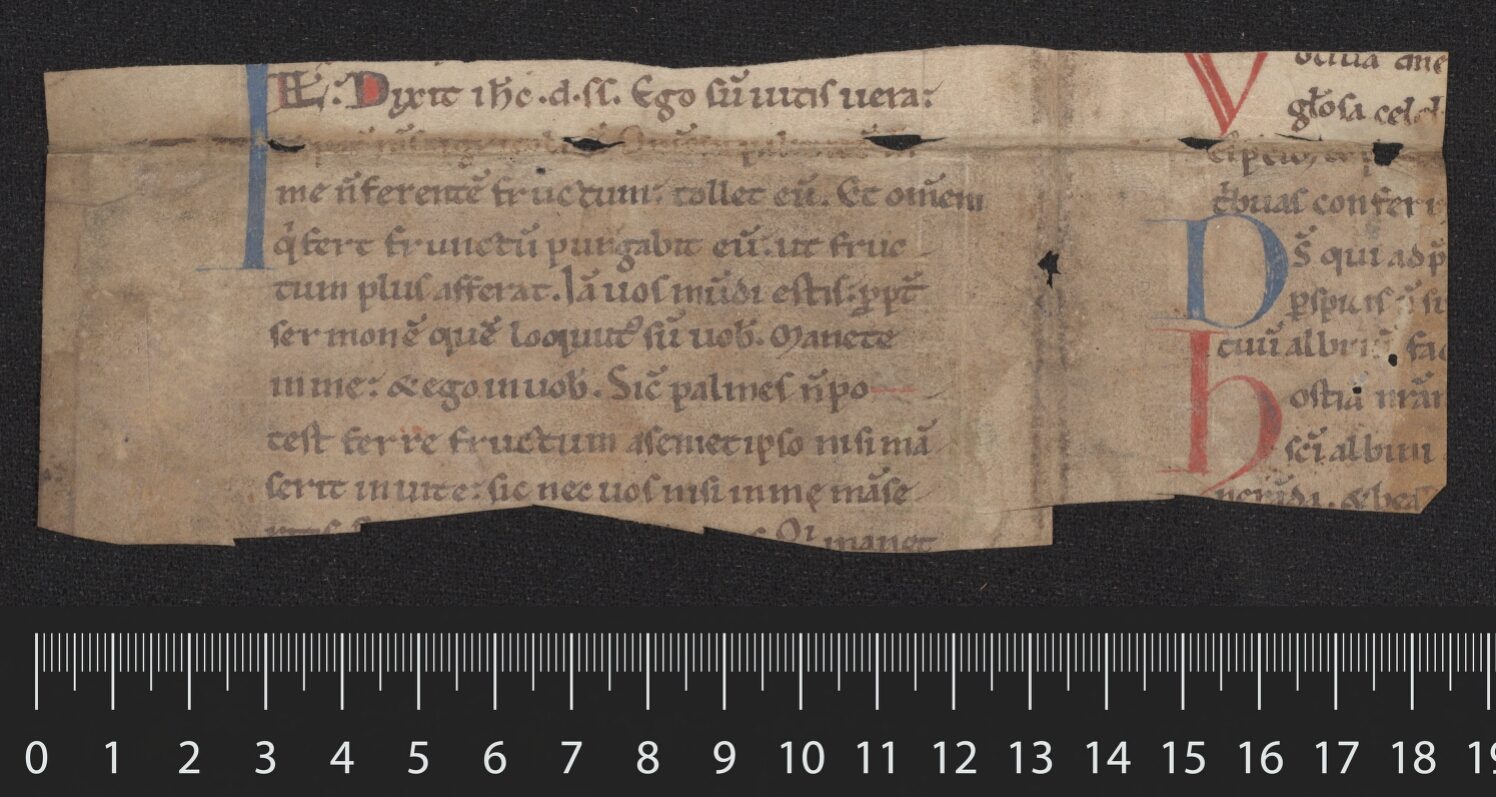 I
Dixit ihc̄ .d.sſ. Ego sū uitis uera:
me n̄ ferentē fructum: tollet eū. Et om̄em
q̄ fert frunctū purgabit eū. ut fruc
tum plus afferat. Iā uos mūdi estis: ꝓpt̄
sermonē quē loquut᷒ sū uob̄. Manete
in me: & ego in uob̄. Sic̄ palmes n̄ po
test ferre fructum a semetipso nisi mā
serit in uite: sic nec uos nisi in mę māse
manet
V
glosa celeb
t̄buas confer
D s̄ qui ad p̄
ꝑspicis
H ostia
sc̄i albini